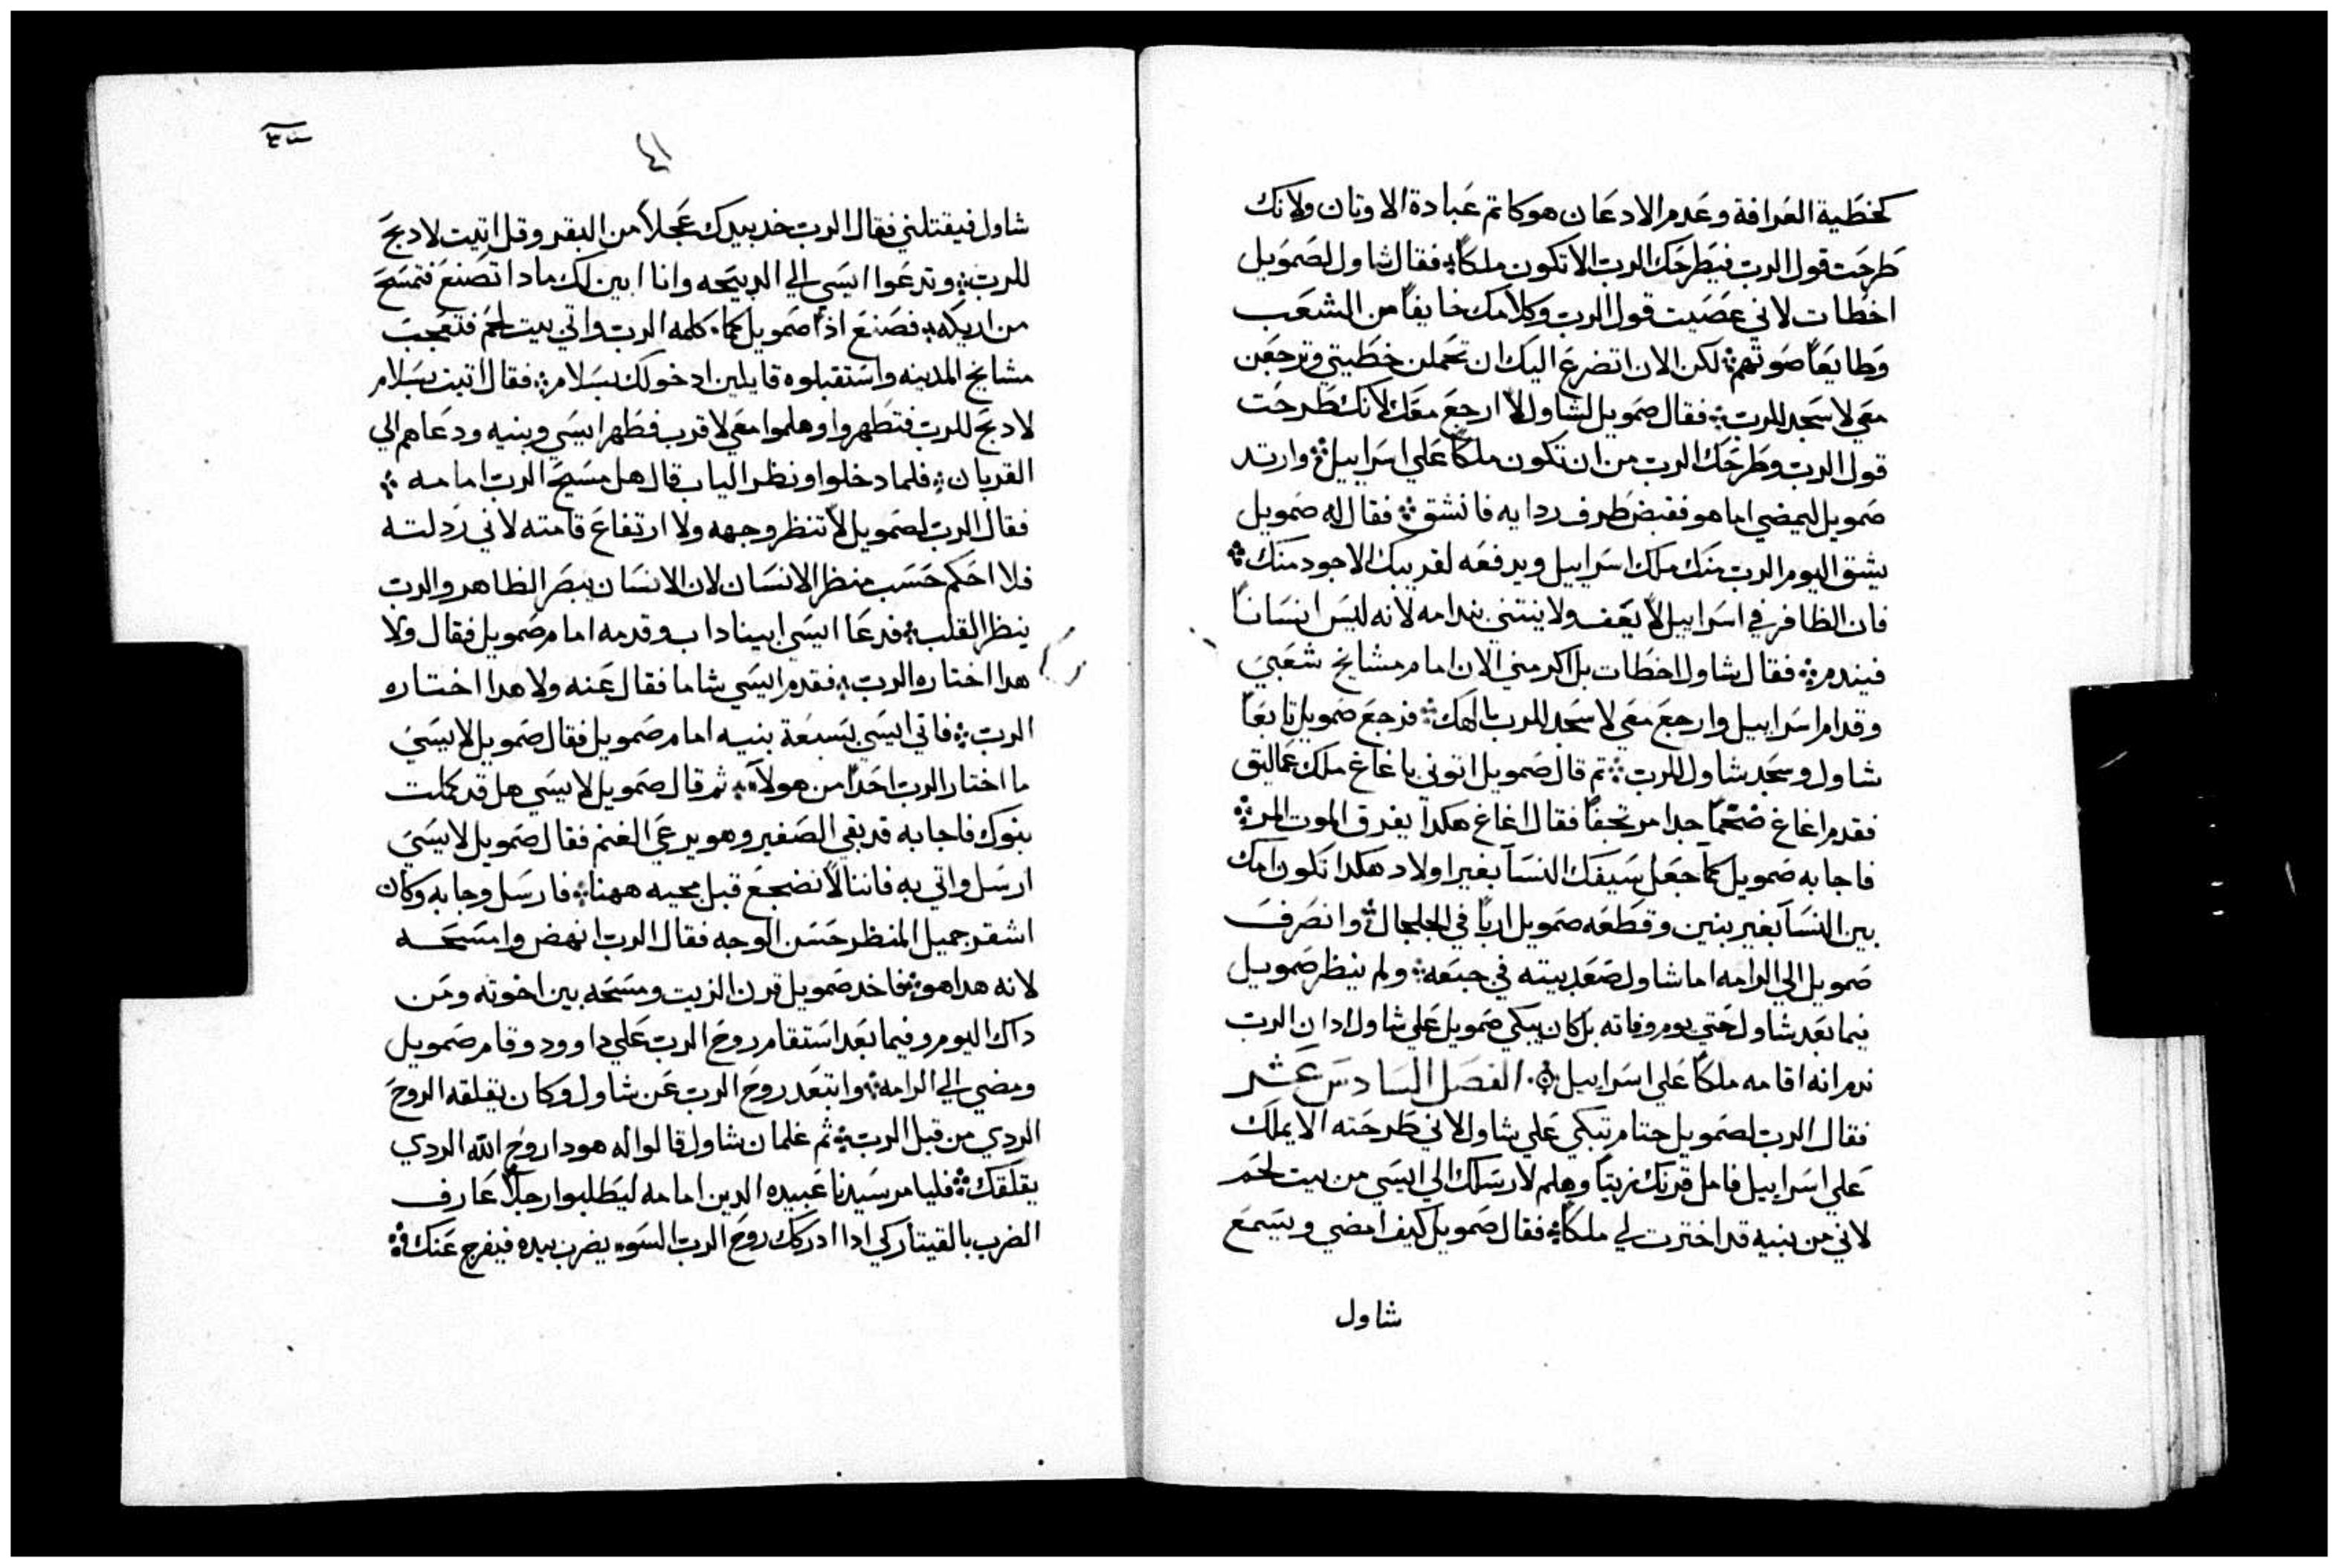 كخطية العرافة وعدم الادعان هو كاتم عبادة الاوتان ولانك
طرحت قول الرب فيطرحك الرب الا تكون ملكاً فقال شاول لصمويل
اخطات لاني عصيت قول الرب وكلامك خايفاً من الشعب
وطايعاً صوتهم لكن الان اتضرع اليك ان تحملن خطيتي وترجعن
معي لاسجد للرب فقال صمويل لشاول لا ارجع معك لانك طرحت
قول الرب وطرحك الرب من ان تكون ملكاً علي اسراييل وارتد
صمويل ليمضي اما هو فقبض طرف ردايه فانشق فقال له صمويل
يشق اليوم الرب منك ملك اسراييل ويدفعه لقريبك الاجود منك
فان الظافر في اسراييل لا يعف ولا ينتني بندامه لانه ليس انساناً
فيندم فقال شاول اخطات بل اكرمني الان امام مشايخ شعبي
وقدام اسراييل وارجع معي لاسجد للرب الهك فرجع صمويل تابعاً
شاول وسجد شاول للرب تم قال صمويل اتوني باغاغ ملك عماليق
فقدم اغاغ ضخماً جدا مرتجفاً فقال اغاغ هكدا يفرق الموت المر
فاجابه صمويل كما جعل سيفك النسآ بغير اولاد هكدا تكون امك
بين النسآ بغير بنين وقطعه صمويل ارباً في الجلجال وانصرف
صمويل الي الرامه اما شاول صعد بيته في جبعه ولم ينظر صمويل
فيما بعد شاول حتي يوم وفاته بل كان يبكي صمويل علي شاول ادان الرب
ندم انه اقامه ملكاً علي اسراييل الفصل السادس عشر
فقال الرب لصمويل حتام تبكي علي شاول لاني طرحته الا يملك
علي اسراييل فامل قرنك زيتاً وهلم لارسلك الي ايسي من بيت لحم
لاني من بنيه قد اخترت لي ملكاً فقال صمويل كيف امضي ويسمع
شاول
شاول فيقتلني فقال الرب خد بيدك عجلاً من البقر وقل اتيت لادبح
للرب وتدعوا ايسي الي الدبيحه وانا ابين لك مادا تصنع فتمسح
من اريكه فصنع اذاً صمويل كما كلمه الرب واتي بيت لحم فتعجب
مشايخ المدينه واستقبلوه قايلين ادخولك بسلام فقال اتيت بسلام
لادبح للرب فتطهروا وهلموا معي لاقرب فطهر ايسي وبنيه ودعاهم الي
القربان فلما دخلوا ونظر الياب قال هل مسيح الرب امامه
فقال الرب لصمويل لا تنظر وجهه ولا ارتفاع قامته لاني ردلته
فلا احكم حسب منظر الانسان لان الانسان يبصر الظاهر والرب
ينظر القلب فدعا ايسي ابيناداب وقدمه امام صمويل فقال ولا
هدا اختاره الرب فقدم ايسي شاما فقال عنه ولا هدا اختاره
الرب فاتي ايسي بسبعة بنيه امام صمويل فقال صمويل لايسي
ما اختار الرب احداً من هولاء ثم قال صمويل لايسي هل قد كملت
بنوك فاجابه قد بقي الصغير وهو يرعي الغنم فقال صمويل لايسي
ارسل واتي به فاننا لا نضجع قبل مجيه ههنا فارسل وجابه وكان
اشقر جميل المنظر حسن الوجه فقال الرب انهض وامسحه
لانه هدا هو فاخد صمويل قرن الزيت ومسحه بين اخوته ومن
داك اليوم وفيما بعد استقام روح الرب علي داوود وقام صمويل
ومضي الي الرامه وابتعد روح الرب عن شاول وكان يقلقه الروح
الردي من قبل الرب ثم غلمان شاول قالوا له هودا روح الله الردي
يقلقك فليامر سيدنا عبيده الدين امامه ليطلبوا رجلاً عارف
الضرب بالقيتار كي ادا ادركك روح الرب السوء يضرب بيده فيفرج عنك